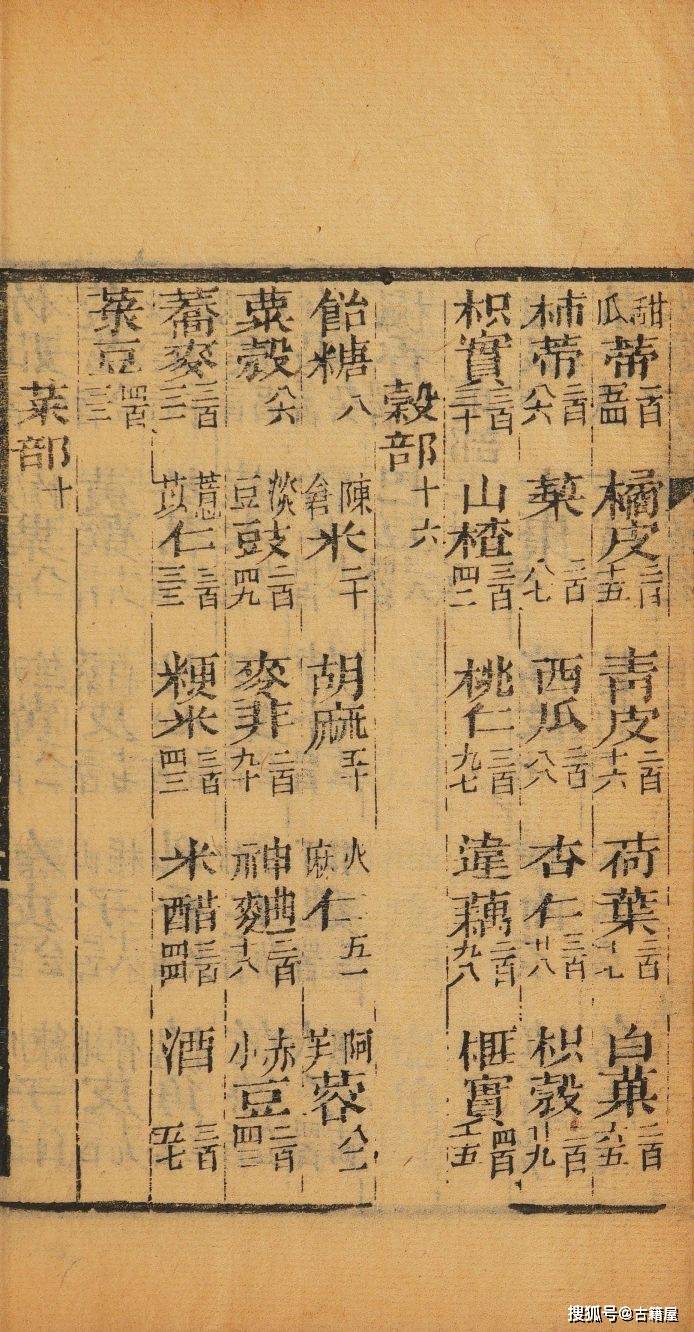 甜瓜蒂二百五四 橘皮二百十五 青皮二百十六 荷葉二百十七 白菓二百六五
柿蒂二百八六 二百八七 西瓜二百八八 杏仁三百廿八 枳殼廿九
枳實三百三十 山楂三百四二 桃仁三百九七 藕三百九八 榧實四百五
穀部十六
飴糖八 陳倉米二十 胡麻五十 火麻仁五一 阿芙蓉八二
粟殼八六 淡豆豉二百四九 麥芽二百九十 神曲二百十八 赤小豆二百四三
蕎麥三百二一 薏苡仁三百三三 粳米三百四三 米醋三百四四 酒三百五七
菉豆四百三二
菜部十
搜狐号@古籍屋